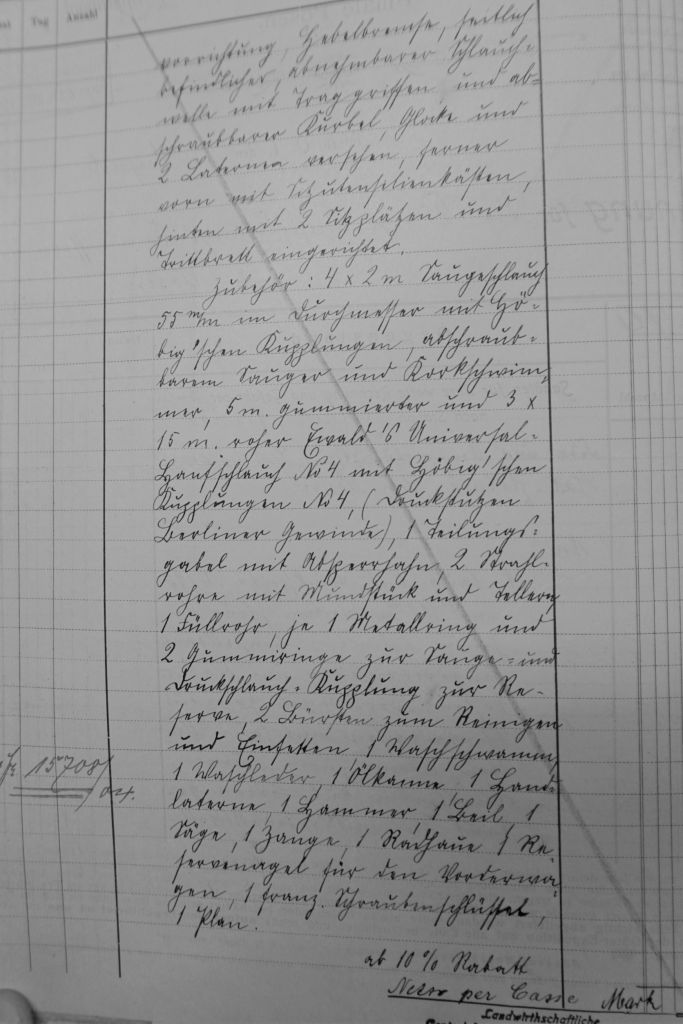 Tag Anzahl
vorrichtung, Hebelbremse, seitlich
befindlicher, abnehmbarer Schlauch-
welle mit Traggriffen und ab-
schraubbarer Kurbel, Glocke und
2 Laternen versehen, ferner
vorn mit Sitzutensilienkästen,
hinten mit 2 Sitzplätzen und
Trittbrett eingerichtet.
Zubehör: 4 x 2 m Saugeschlauch
55 m/m im Durchmesser mit Hö-
big'schen Kupplungen, abschraub-
barem Sauger und Korkschwim-
mer, 5 m. gummierter und 3 x
15 m. roher Ewald's Universal-
Hanfschlauch No 4 mit Höbig'schen
Kupplungen No 4, (Druckstutzen
Berliner Gewinde), 1 Teilungs-
gabel mit Absperrhahn, 2 Strahl-
rohre mit Mundstück und Tellern,
1 Füllrohr, je 1 Metallring und
2 Gummiringe zur Sauge- und
Druckschlauch-Kupplung zur Re-
serve, 2 Bürsten zum Reinigen
und Einfetten, 1 Waschschwamm,
1 Waschleder, 1 Ölkanne, 1 Hand-
laterne, 1 Hammer, 1 Beil, 1
Säge, 1 Zange, 1 Radhaue, 1 Re-
servenagel für den Vorderwa-
gen, 1 franz. Schraubenschlüssel,
1 Plan.
15708/04.
ab 10 % Rabatt
Netto per Casse Mark
Landwirthschaftliche